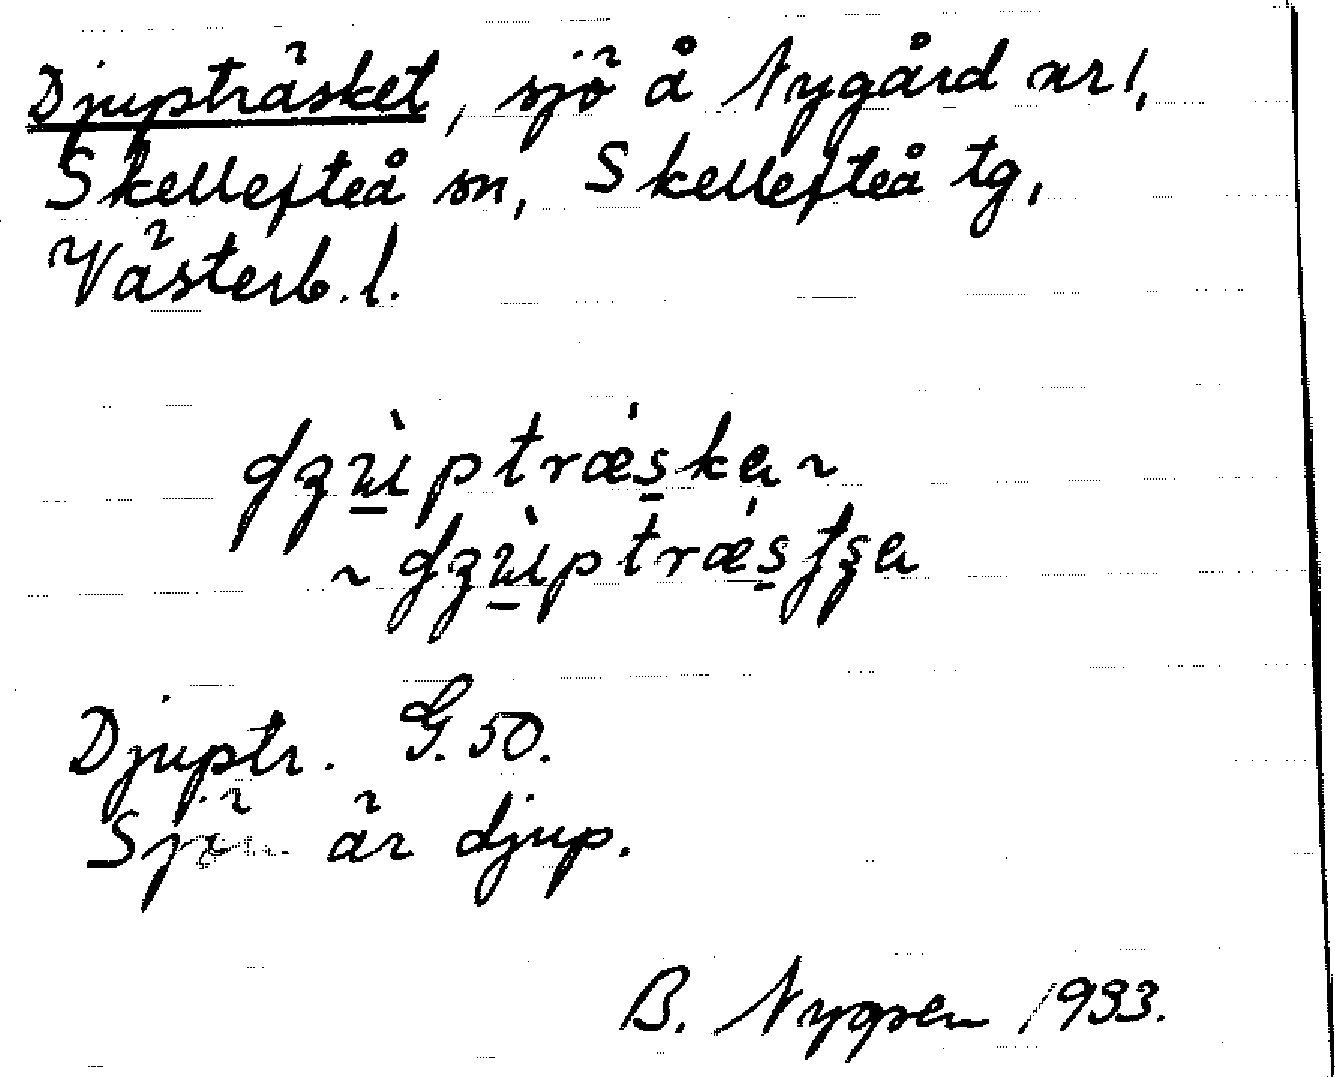 Djupträsket, sjö å Nygård nr 1,
Skellefteå sn, Skellefteå tg,
Västerb. l.
Djuptr. G. 50.
Sjön är djup.
B. Nygren 1933.